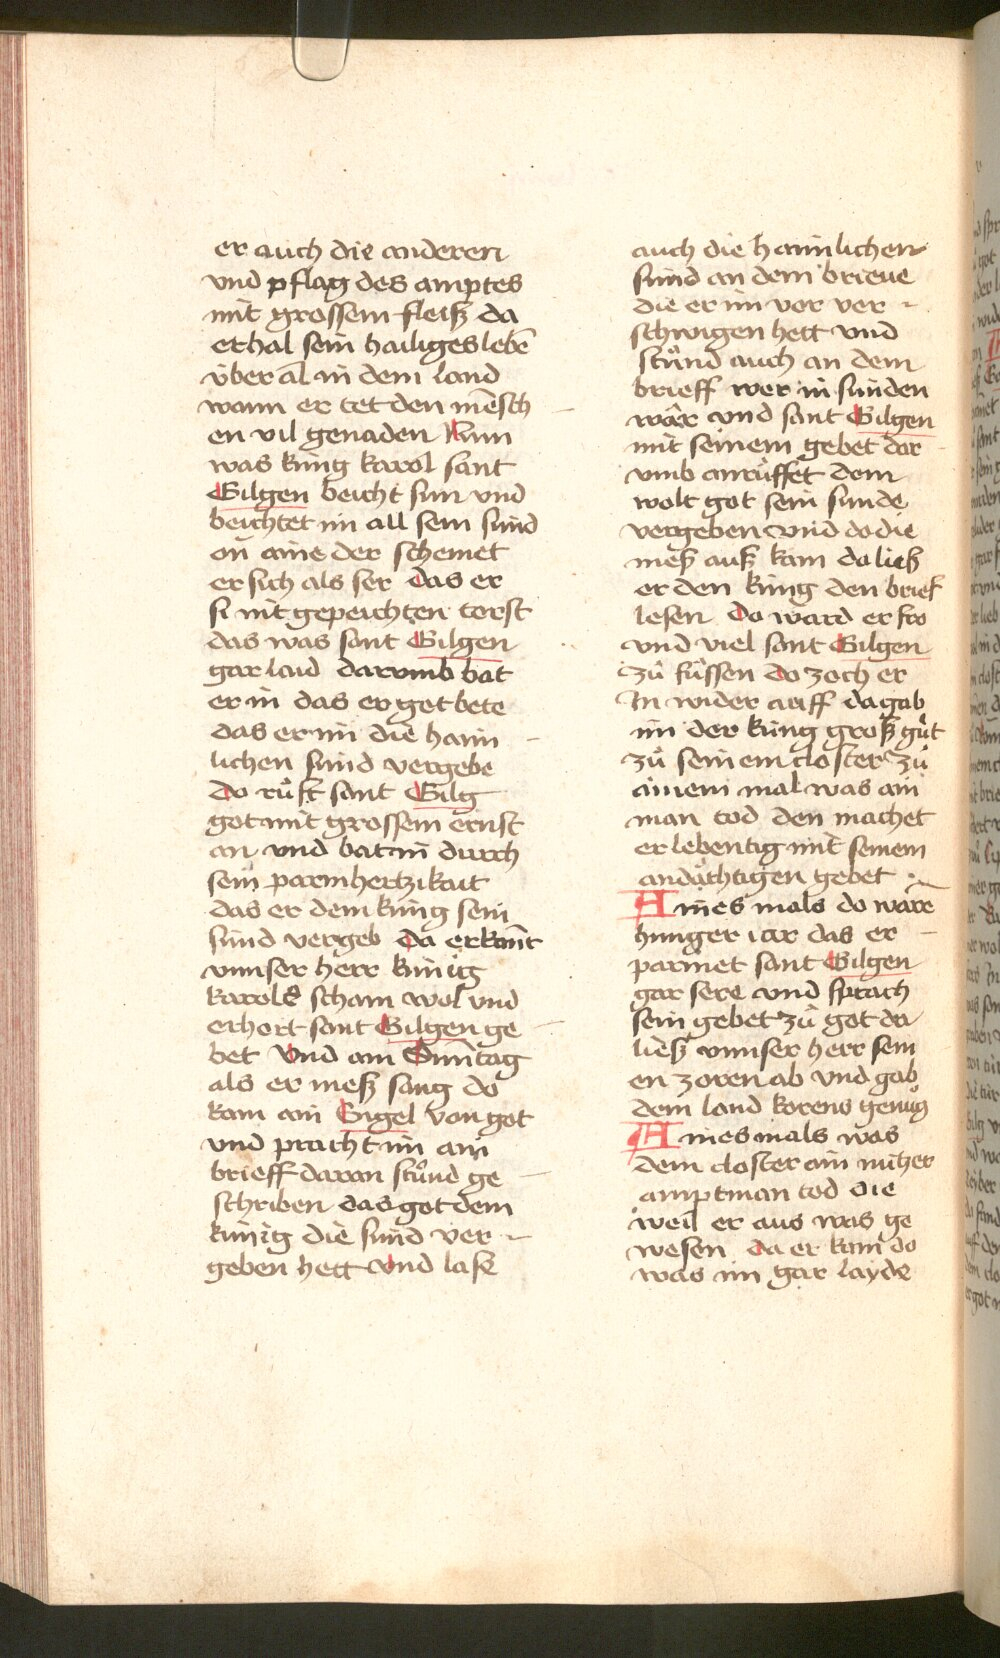 er auch die anderen
vnd pflag des amptes
mit grossem fleiß da
erhal sein hailiges lebē
über al in dem land
wann er tet den mēsch
en vil genaden Nun
was king karol sant
Gilgen beicht sun vnd
beichtet im all sein sünd
on aine der schemet
er sich als ser das er
si nit gepeichten torst
das was sant Gilgen
gar laid darvmb bat
er in das er got bete
das er im die haim
lichen sünd vergebe
Do růft sant Gilg
got mit grossem ernst
an vnd bat in durch
sein parmhertzikait
das er dem king sein
sünd vergeb da erkant
vnnser herr künig
karols scham wol vnd
erhort sant Gilgen ge
bet Vnd am Sunntag
als er meß sang do
kam ain Engel von got
vnd pracht im ain
brieff daran stůnd ge
schriben das got dem
künig die sünd ver
geben hett vnd lasz
auch die haimlichen
sünd an dem brieue
die er im vor ver
schwigen hett vnd
stůnd auch an dem
brieff wer in sünden
wär vnd sant Gilgen
mit seinem gebet dar
vmb anrůffet dem
wolt got sein sunde
vergeben vnd do die
meß auß kam do ließ
er den king den brief
lesen Do ward er fro
vnd viel sant Gilgen
zů füssen do zoch er
In wider auff da gab
im der king groß gůt
zů seinem closter Zů
ainem mal was ain
man tod den machet
er lebentig mit seinem
andächtigen gebet
Aines mals do ware
hunger iar das er
parmet sant Gilgen
gar sere vnd sprach
sein gebet zů got da
ließ vnnser herr sein
en zoren ab vnd gab
dem land korens genůg
Aines mals was
dem closter ain nützer
amptman tod die
weil er aus was ge
wesen da er kam do
was im gar layde